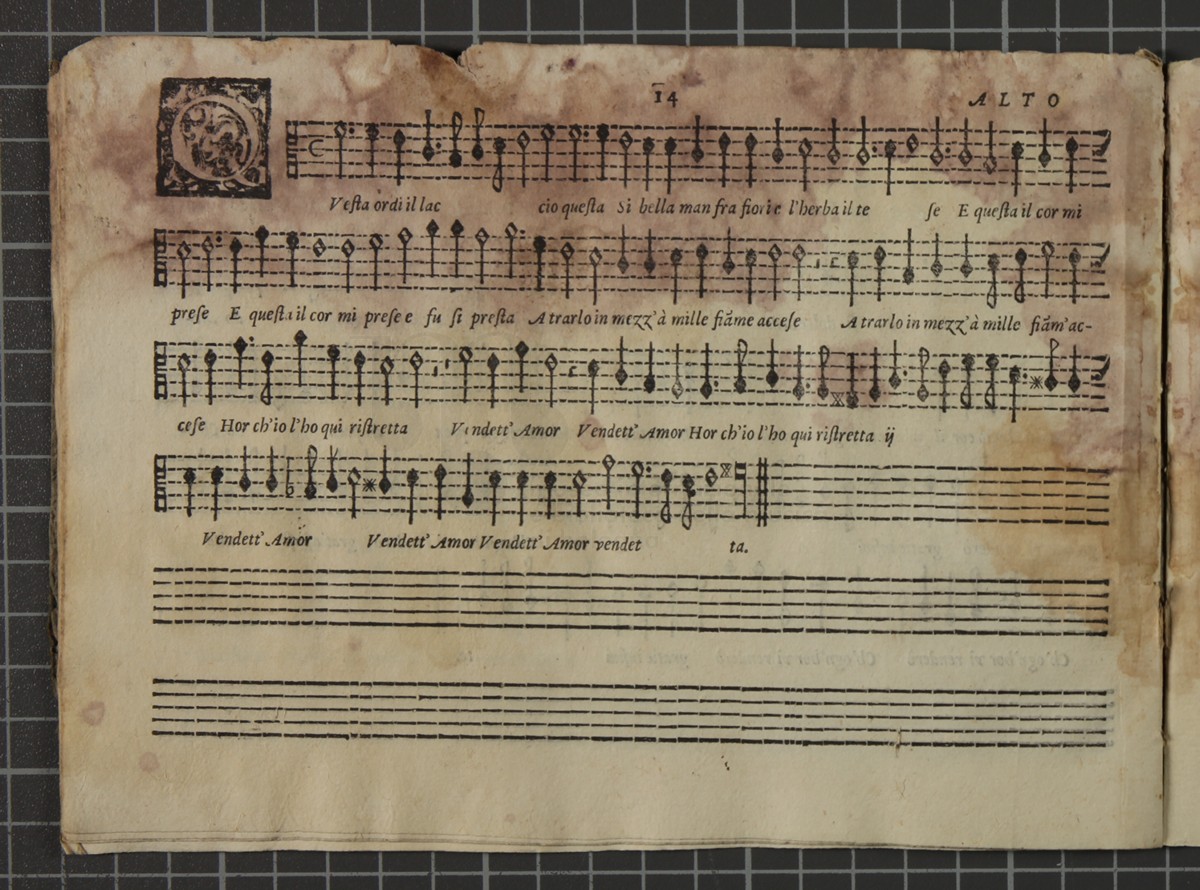 14 ALTO
QVesta ordi il lac cio questa Si bella man fra fiori e l'herba il te se E questa il cor mi
prese E questa il cor mi prese e fu si presta A trarlo in mezz' à mille fiãme accese A trarlo in mezz' à mille fiãm' ac-
cese Hor ch'io l'ho qui ristretta Vendett' Amor Vendett' Amor Hor ch'io l'ho qui ristretta ij
Vendett' Amor Vendett' Amor Vendett' Amor vendet ta.